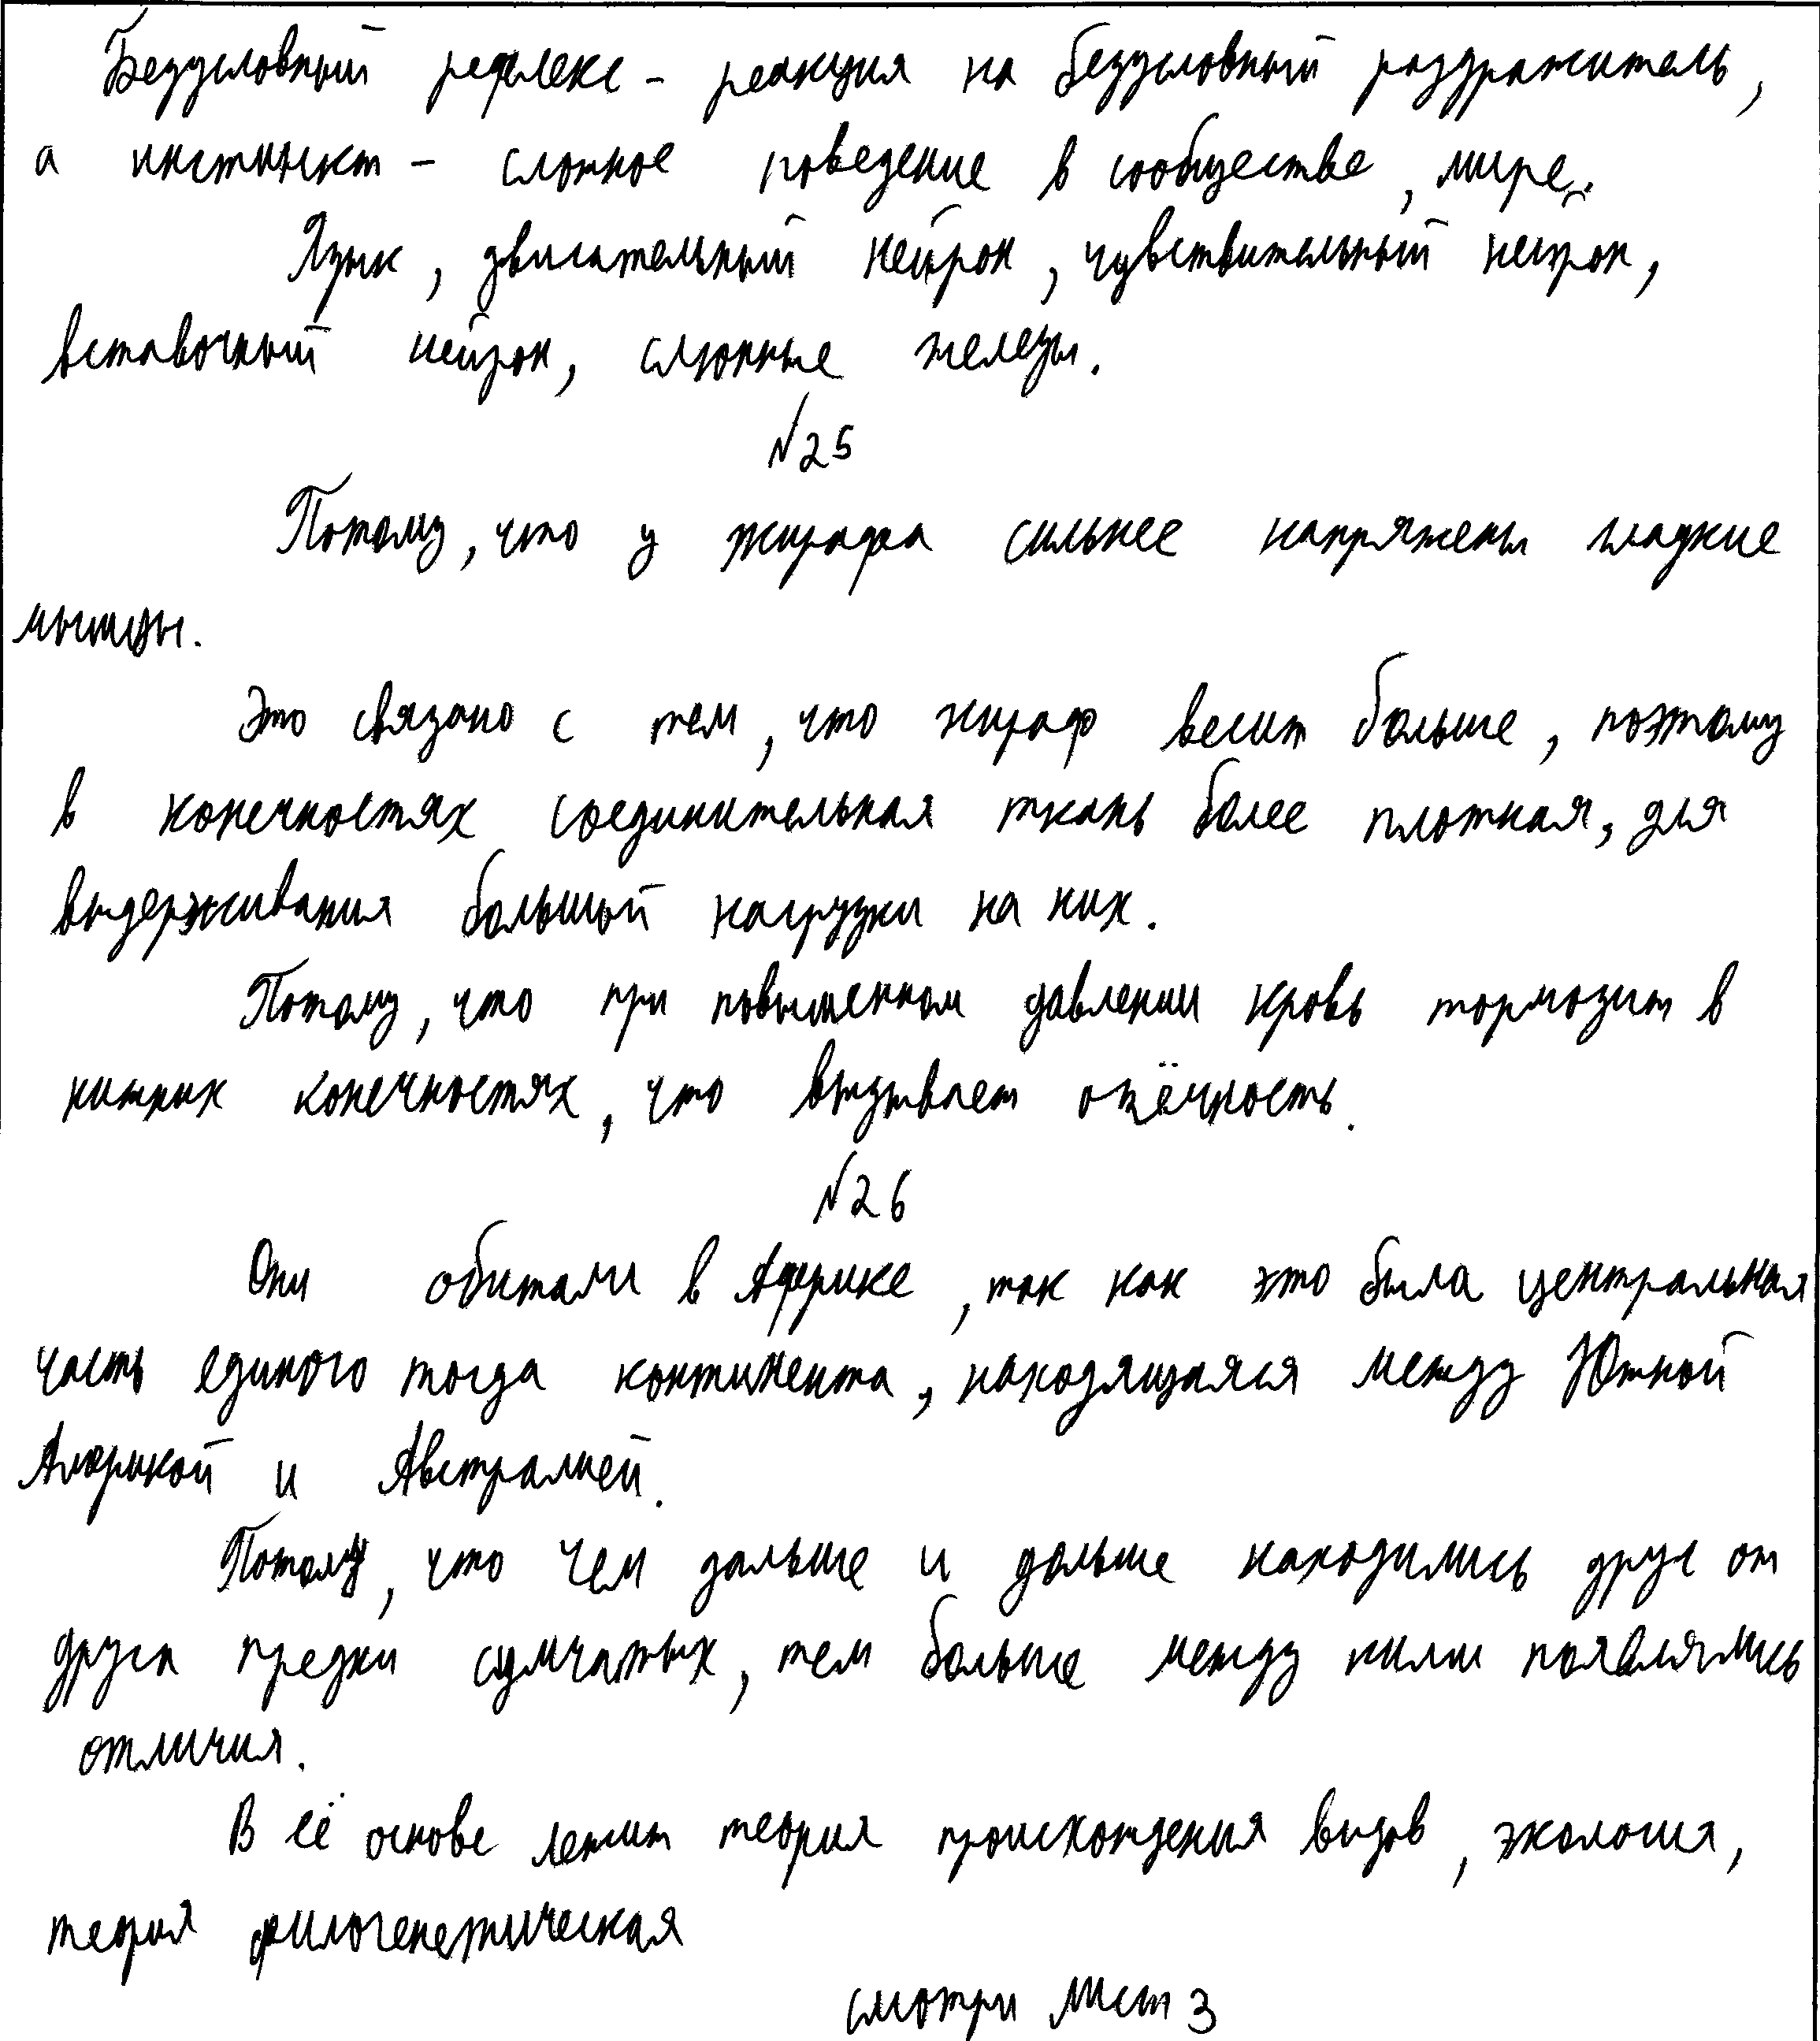 Безусловный рефлекс – реакция на безусловный раздражитель,
а инстинкт – сложное поведение в сообществе, мире.
Язык, двигательный нейрон, чувствительный нейрон,
вставочный нейрон, слюнные железы.
№25
Потому, что у жирафа сильнее напряжены гладкие
мышцы.
Это связано с тем, что жираф весит больше, поэтому
в конечностях соединительная ткань более плотная, для
выдерживания большой нагрузки на них.
Потому, что при повышенном давлении кровь тормозит в
нижних конечностях, что вызывает отёчность.
№26
Они обитали в Африке, так как это была центральная
часть единого тогда континента, находящаяся между Южной
Америкой и Австралией.
Потому, что чем дальше и дольше находились друг от
друга предки сумчатых, тем больше между ними появлялись
отличия.
В её основе лежит теория происхождения видов, экология,
теория филогенетическая
смотри лист 3